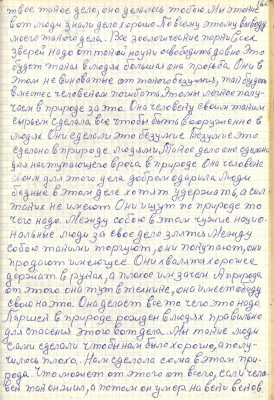 твое такое дело, оно делалось тобою. Мы этаких
вот людей знали дело хорошо. По всему этому выводу
моего такого дела. Все зоологические парки всех
зверей надо от такой науки освободить давно. Это
будет такая в людях большая она просьба. Они в
этом не виноватые от такого безумия, так будет
вместе с человеком погибать. Этому легкое полу-
чаем в природе за это. Она человеку своим таким
сырьем сделала все, чтобы быть вооруженно в
людях. Они сделали это безумие. Безумие это
сделано в природе людьми. Такое дело оно сделано
для наступающего врага в природе. Оно человеке
хом для этого дела добром одарила. Люди
бедные в этом деле хотят удержать, а сил
таких не имеют. Они ищут по природе то
чего надо. Между собою в этом чужие нацио-
нальные люди за свое дело злятся. Между
собою такими торгуют, они покупают, они
продают имеющее. Они хвалят хорошее
держат в руках, а плохое им зачем. А природа
от этого она путь в технике, она имеет обиду
свою на это. Она делает все то чего это надо.
Паршек в природе рожден в людях правильно
для спасения этого вот дела. Мы такие люди
сами сделали чтобы нам было хорошо, а полу-
чилось плохо. Нам сделала сама в этом при-
рода. Что может от этого от всего, если чело-
век так он жил, а потом он умер на веки веков.